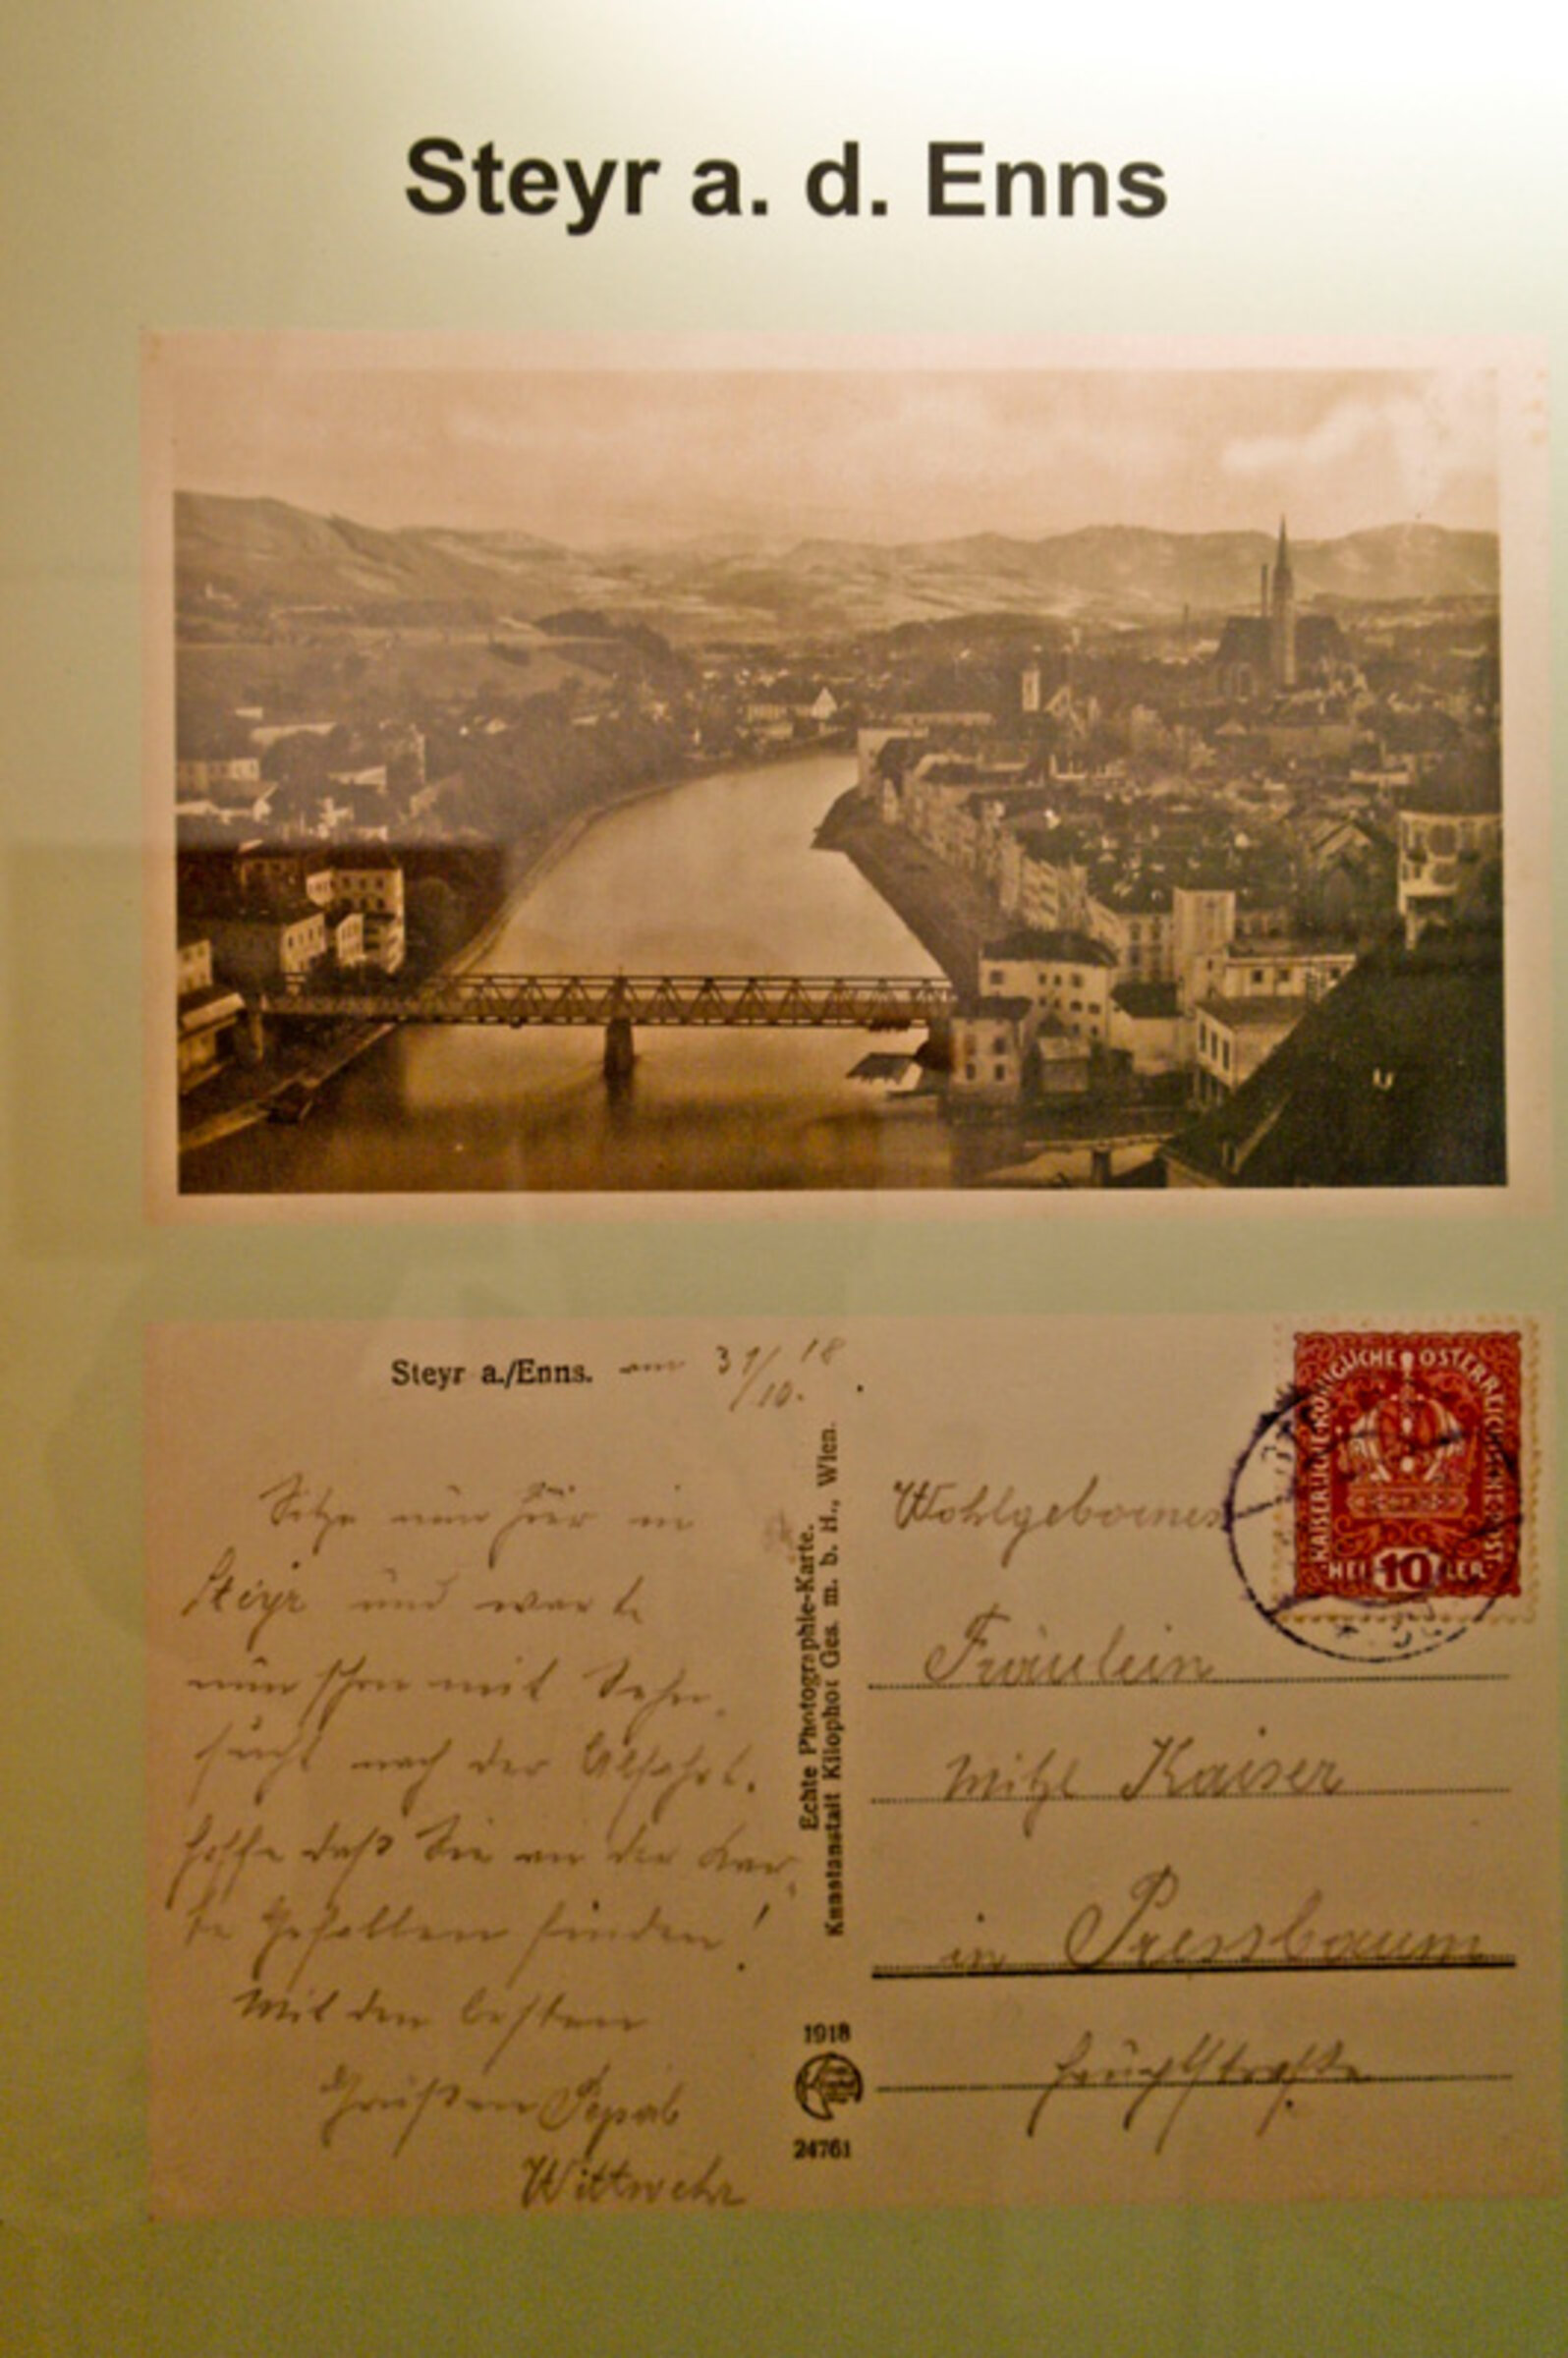 Steyr a. d. Enns
Steyr a./Enns. am 31/10. 18
Sitze nun hier in
Steyr und warte
nun schon mit Sehn-
sucht nach der Abfahrt.
hoffe daß Sie an der Kar-
te Gefallen finden!
Mit den besten
Grüßen
Wittwehr
Echte Photographie-Karte.
Kunstanstalt Kilophot Ges. m. b. H., Wien.
1918
24761
KAISERLICHE KÖNIGLICHE ÖSTERREICHISCHE POST
10
HELLER
Wohlgebornes
Fräulein
Mitzl Kaiser
in Pressbaum
Hauptstraße